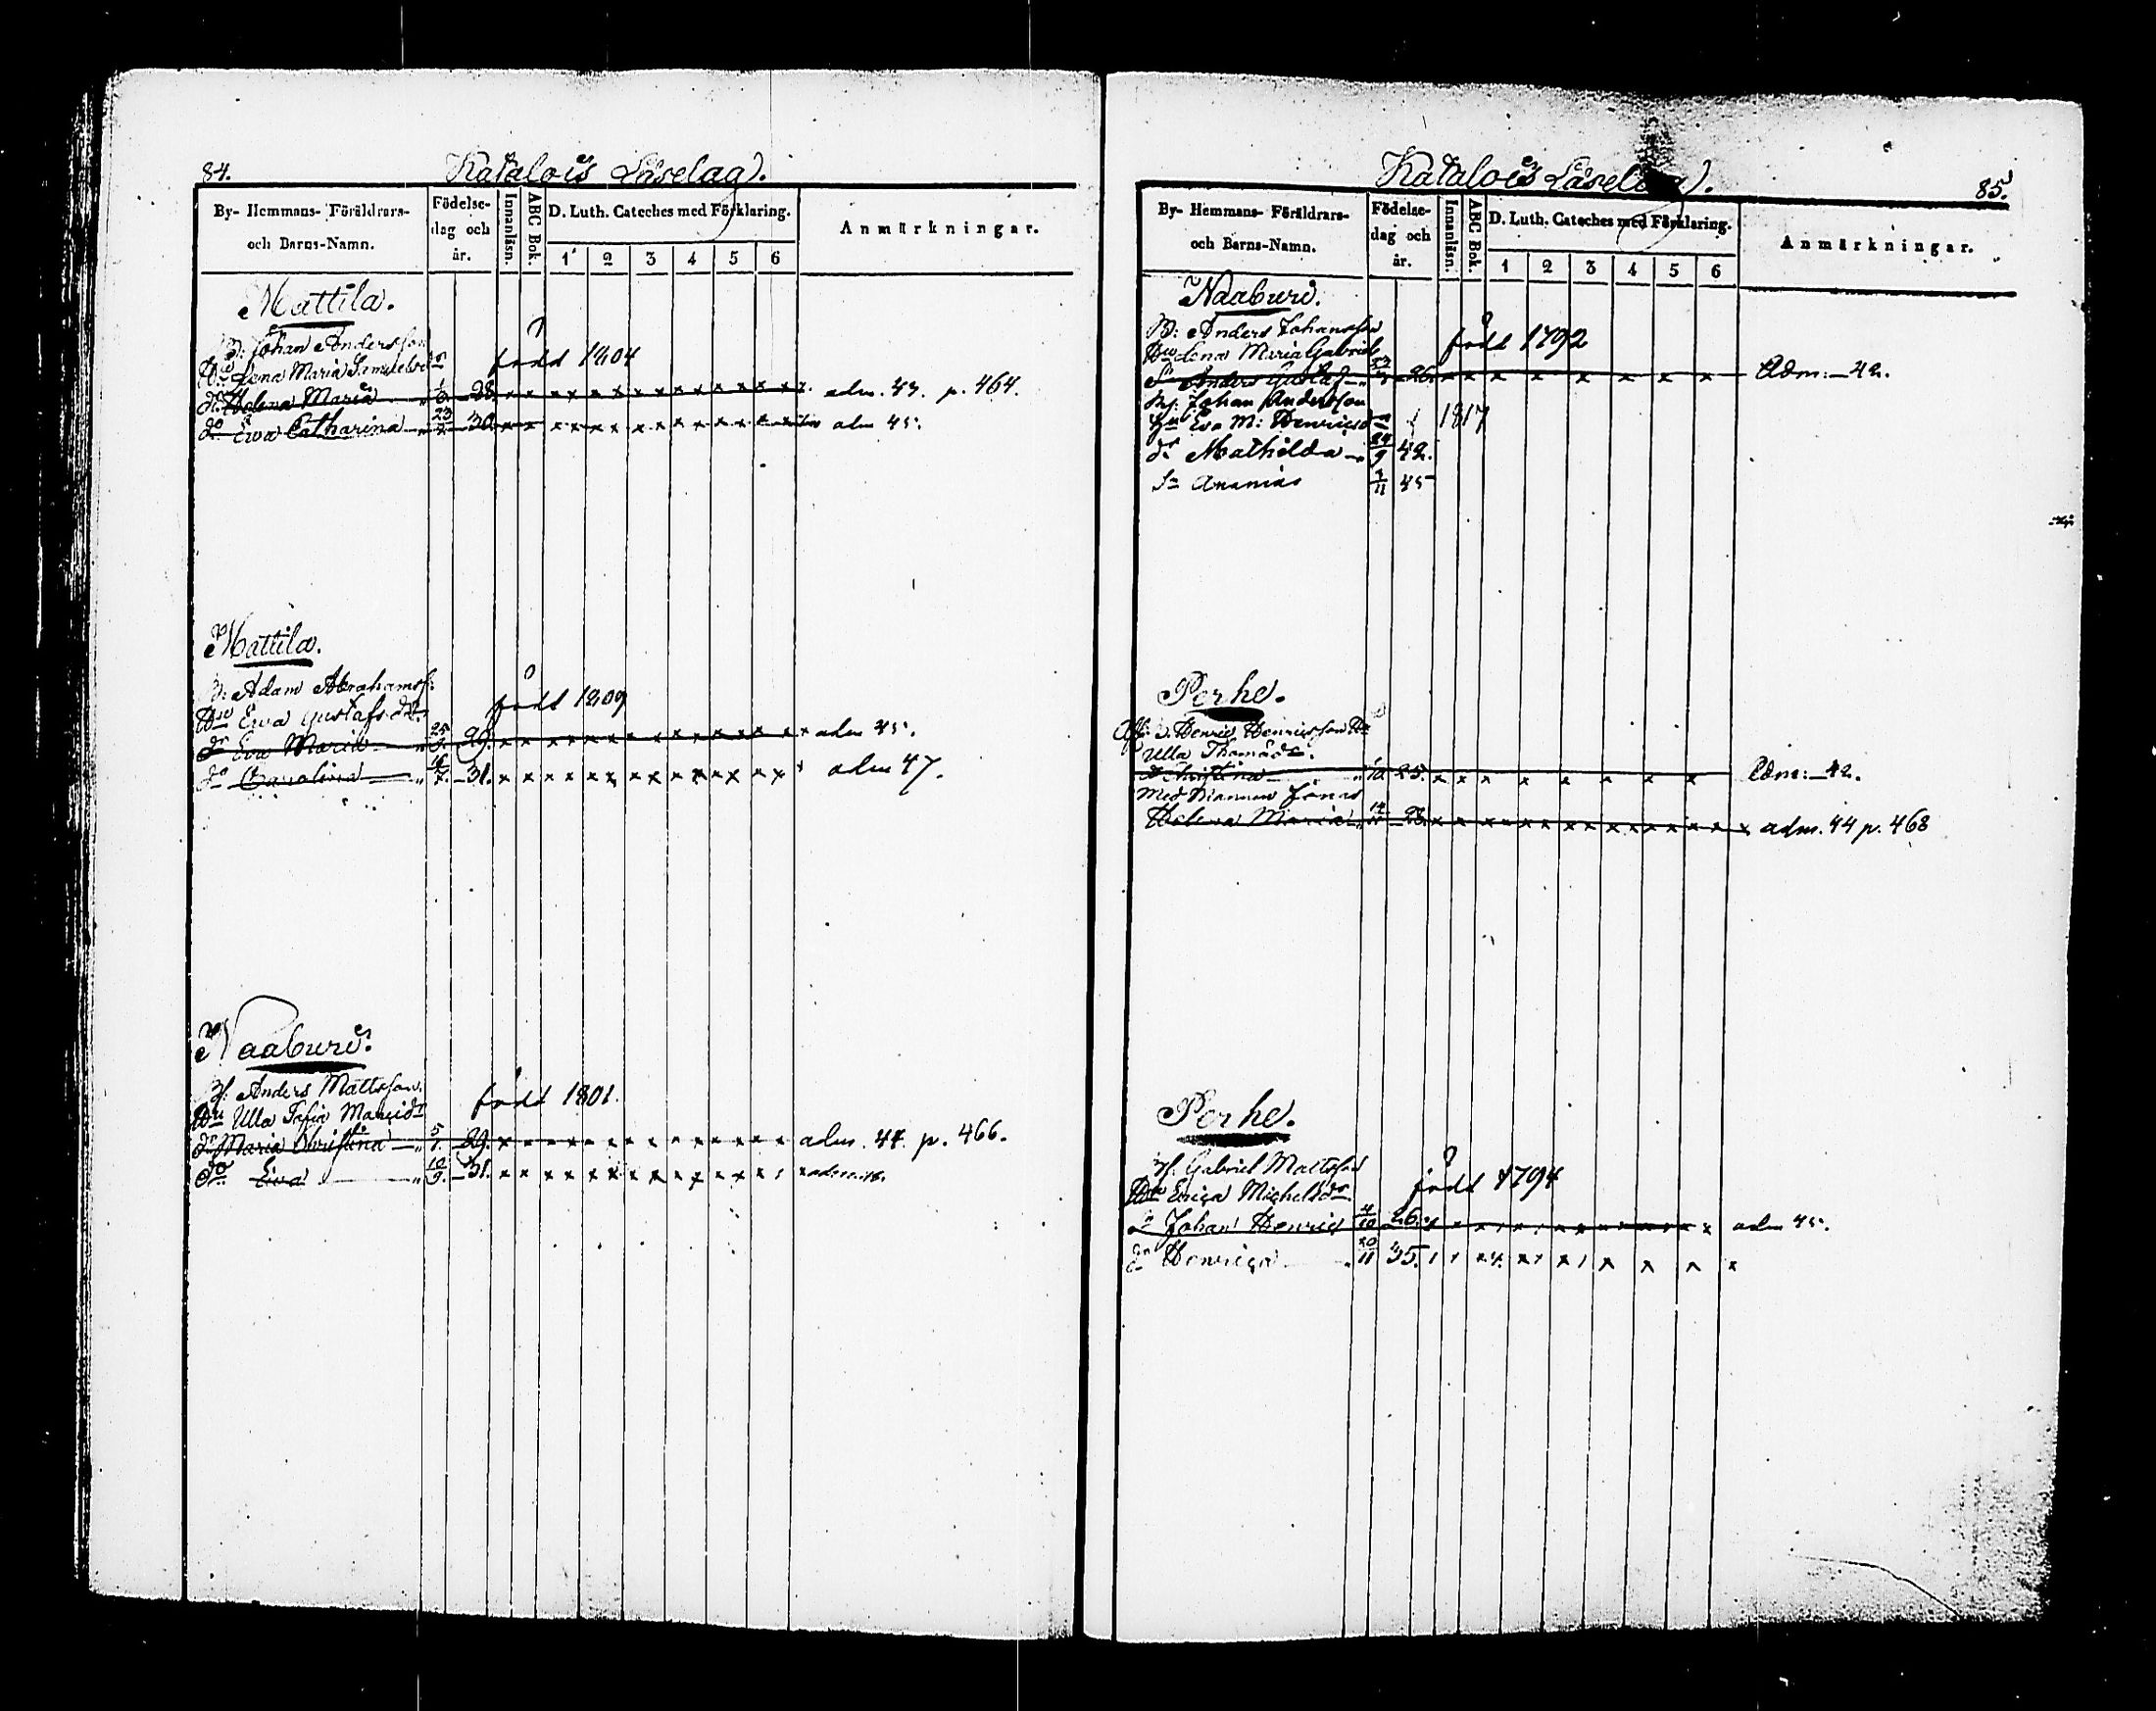 84.
Katalois Läselag.
By- Hemmans- Föräldrars- och Barns-Namn.
Födelse- dag och år.
Innanläsn.
ABC Bok.
D. Luth. Cateches med Förklaring.
1 2 3 4 5 6
Anmärkningar.
Mattila.
B: Johan Andersson
Hu Lena Maria född 1804
dr Helena Maria 1/6 28. x x x x x x x x x x x x adm. 43. p. 464.
do Ewa Catharina 23/2 30. x x x x x x x x x x x adm 45.
Mattila.
B: Adam Abrahamss:
Hu Ewa Gustafsdr född 1809
dr Eva Maria 25/3. 29. x x x x x x x x x x x x adm 45.
do Carolina 31. x x x x x x x x x x x x adm 47.
Naaburi.
Bf. Anders Mattsson
Hu Ulla Sofia född 1801.
dr Maria Christina 5/1. 29. x x x x x x x x x x x adm. 44. p. 466.
do Eva 10/9. 31. x x x x x x x x x x x
Katalois Läselag.
85.
By- Hemmans- Föräldrars- och Barns-Namn.
Födelse- dag och år.
Innanläsn.
ABC Bok.
D. Luth. Cateches med Förklaring.
1 2 3 4 5 6
Anmärkningar.
Naaburi.
B: Anders Johansson
Hu Lena Maria Gabriels född 1792
Sn Anders Gustaf 26. x x x x x x x x Adm: 42.
Johan Andersson
Hu Eva M: Henricsd 1817
dr Mathilda 24/9 42.
Sn Ananias 7/11 45
Perhe.
Henric Henricsson Hu
Ulla Thomasdr.
dr Christina 25. x x x x x x x x Adm: 42.
Med Mannen Jonas
Helena Maria 28. x x x x x x x x x x x adm. 44 p. 468
Perhe.
Bf. Gabriel Mattsson
Hu Erica Michelsdr född 1794
Sn Johan Henric 4/10 26. x x x x x x x x x x x adm 45.
dr Henrica 20/11 35. x x x x x x x x